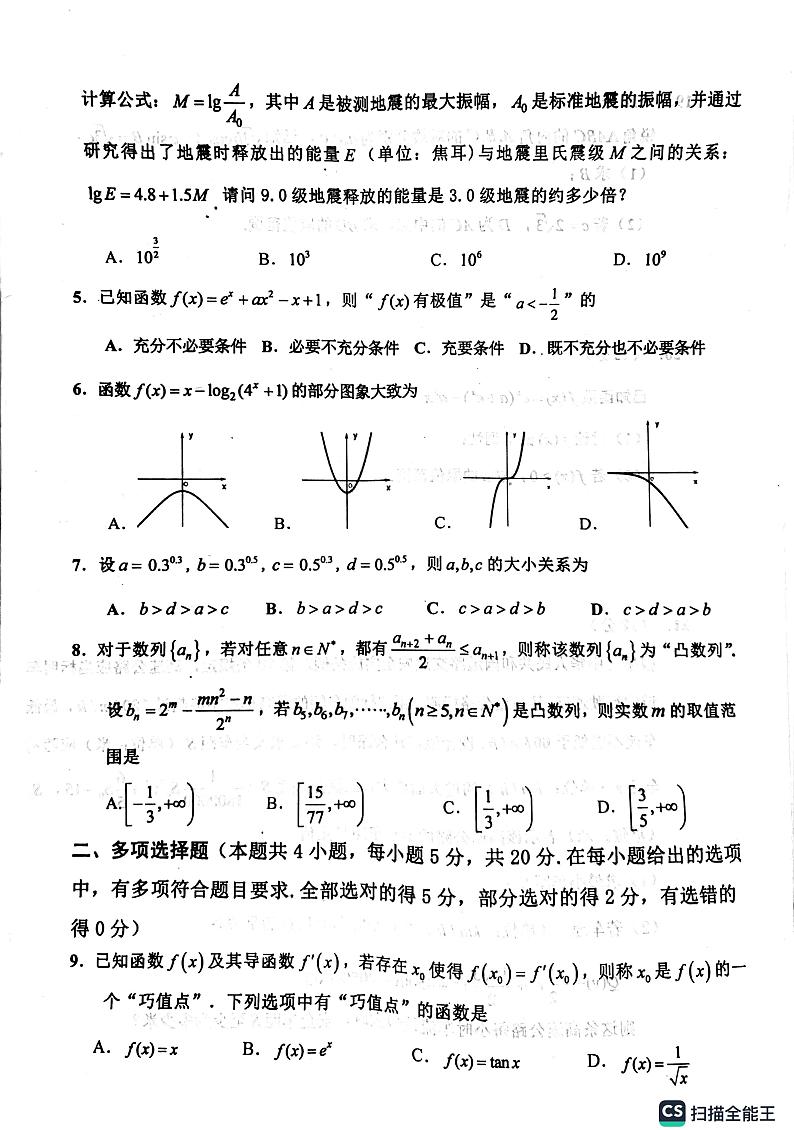 计算公式：$M=\lg\frac{A}{A_0}$，其中 $A$ 是被测地震的最大振幅，$A_0$ 是标准地震的振幅，并通过
研究得出了地震时释放出的能量 $E$（单位：焦耳）与地震里氏震级 $M$ 之间的关系：
$\lg E=4.8+1.5M$ 请问 9.0 级地震释放的能量是 3.0 级地震的约多少倍？
A. $10^{\frac{3}{2}}$ B. $10^3$ C. $10^6$ D. $10^9$
5. 已知函数 $f(x)=e^x+ax^2-x+1$，则“ $f(x)$ 有极值”是“ $a<-\frac{1}{2}$ ”的
A. 充分不必要条件 B. 必要不充分条件 C. 充要条件 D. 既不充分也不必要条件
6. 函数 $f(x)=x-\log_2(4^x+1)$ 的部分图象大致为
y y y y
o x o x o x o x
A. B. C. D.
7. 设 $a=0.3^{0.3}$, $b=0.3^{0.5}$, $c=0.5^{0.3}$, $d=0.5^{0.5}$，则 $a,b,c$ 的大小关系为
A. $b>d>a>c$ B. $b>a>d>c$ C. $c>a>d>b$ D. $c>d>a>b$
8. 对于数列 $\{a_n\}$，若对任意 $n\in N^*$，都有 $\frac{a_{n+2}+a_n}{2}\le a_{n+1}$，则称该数列 $\{a_n\}$ 为“凸数列”.
设 $b_n=2^m-\frac{mn^2-n}{2^n}$，若 $b_5,b_6,b_7,\cdots\cdots,b_n(n\ge 5,n\in N^*)$ 是凸数列，则实数 $m$ 的取值范
围是
A. $\left[-\frac{1}{3},+\infty\right)$ B. $\left[\frac{15}{77},+\infty\right)$ C. $\left[\frac{1}{3},+\infty\right)$ D. $\left[\frac{3}{5},+\infty\right)$
二、多项选择题（本题共 4 小题，每小题 5 分，共 20 分.在每小题给出的选项
中，有多项符合题目要求.全部选对的得 5 分，部分选对的得 2 分，有选错的
得 0 分）
9. 已知函数 $f(x)$ 及其导函数 $f'(x)$，若存在 $x_0$ 使得 $f(x_0)=f'(x_0)$，则称 $x_0$ 是 $f(x)$ 的一
个“巧值点”．下列选项中有“巧值点”的函数是
A. $f(x)=x$ B. $f(x)=e^x$ C. $f(x)=\tan x$ D. $f(x)=\frac{1}{\sqrt{x}}$
CS 扫描全能王